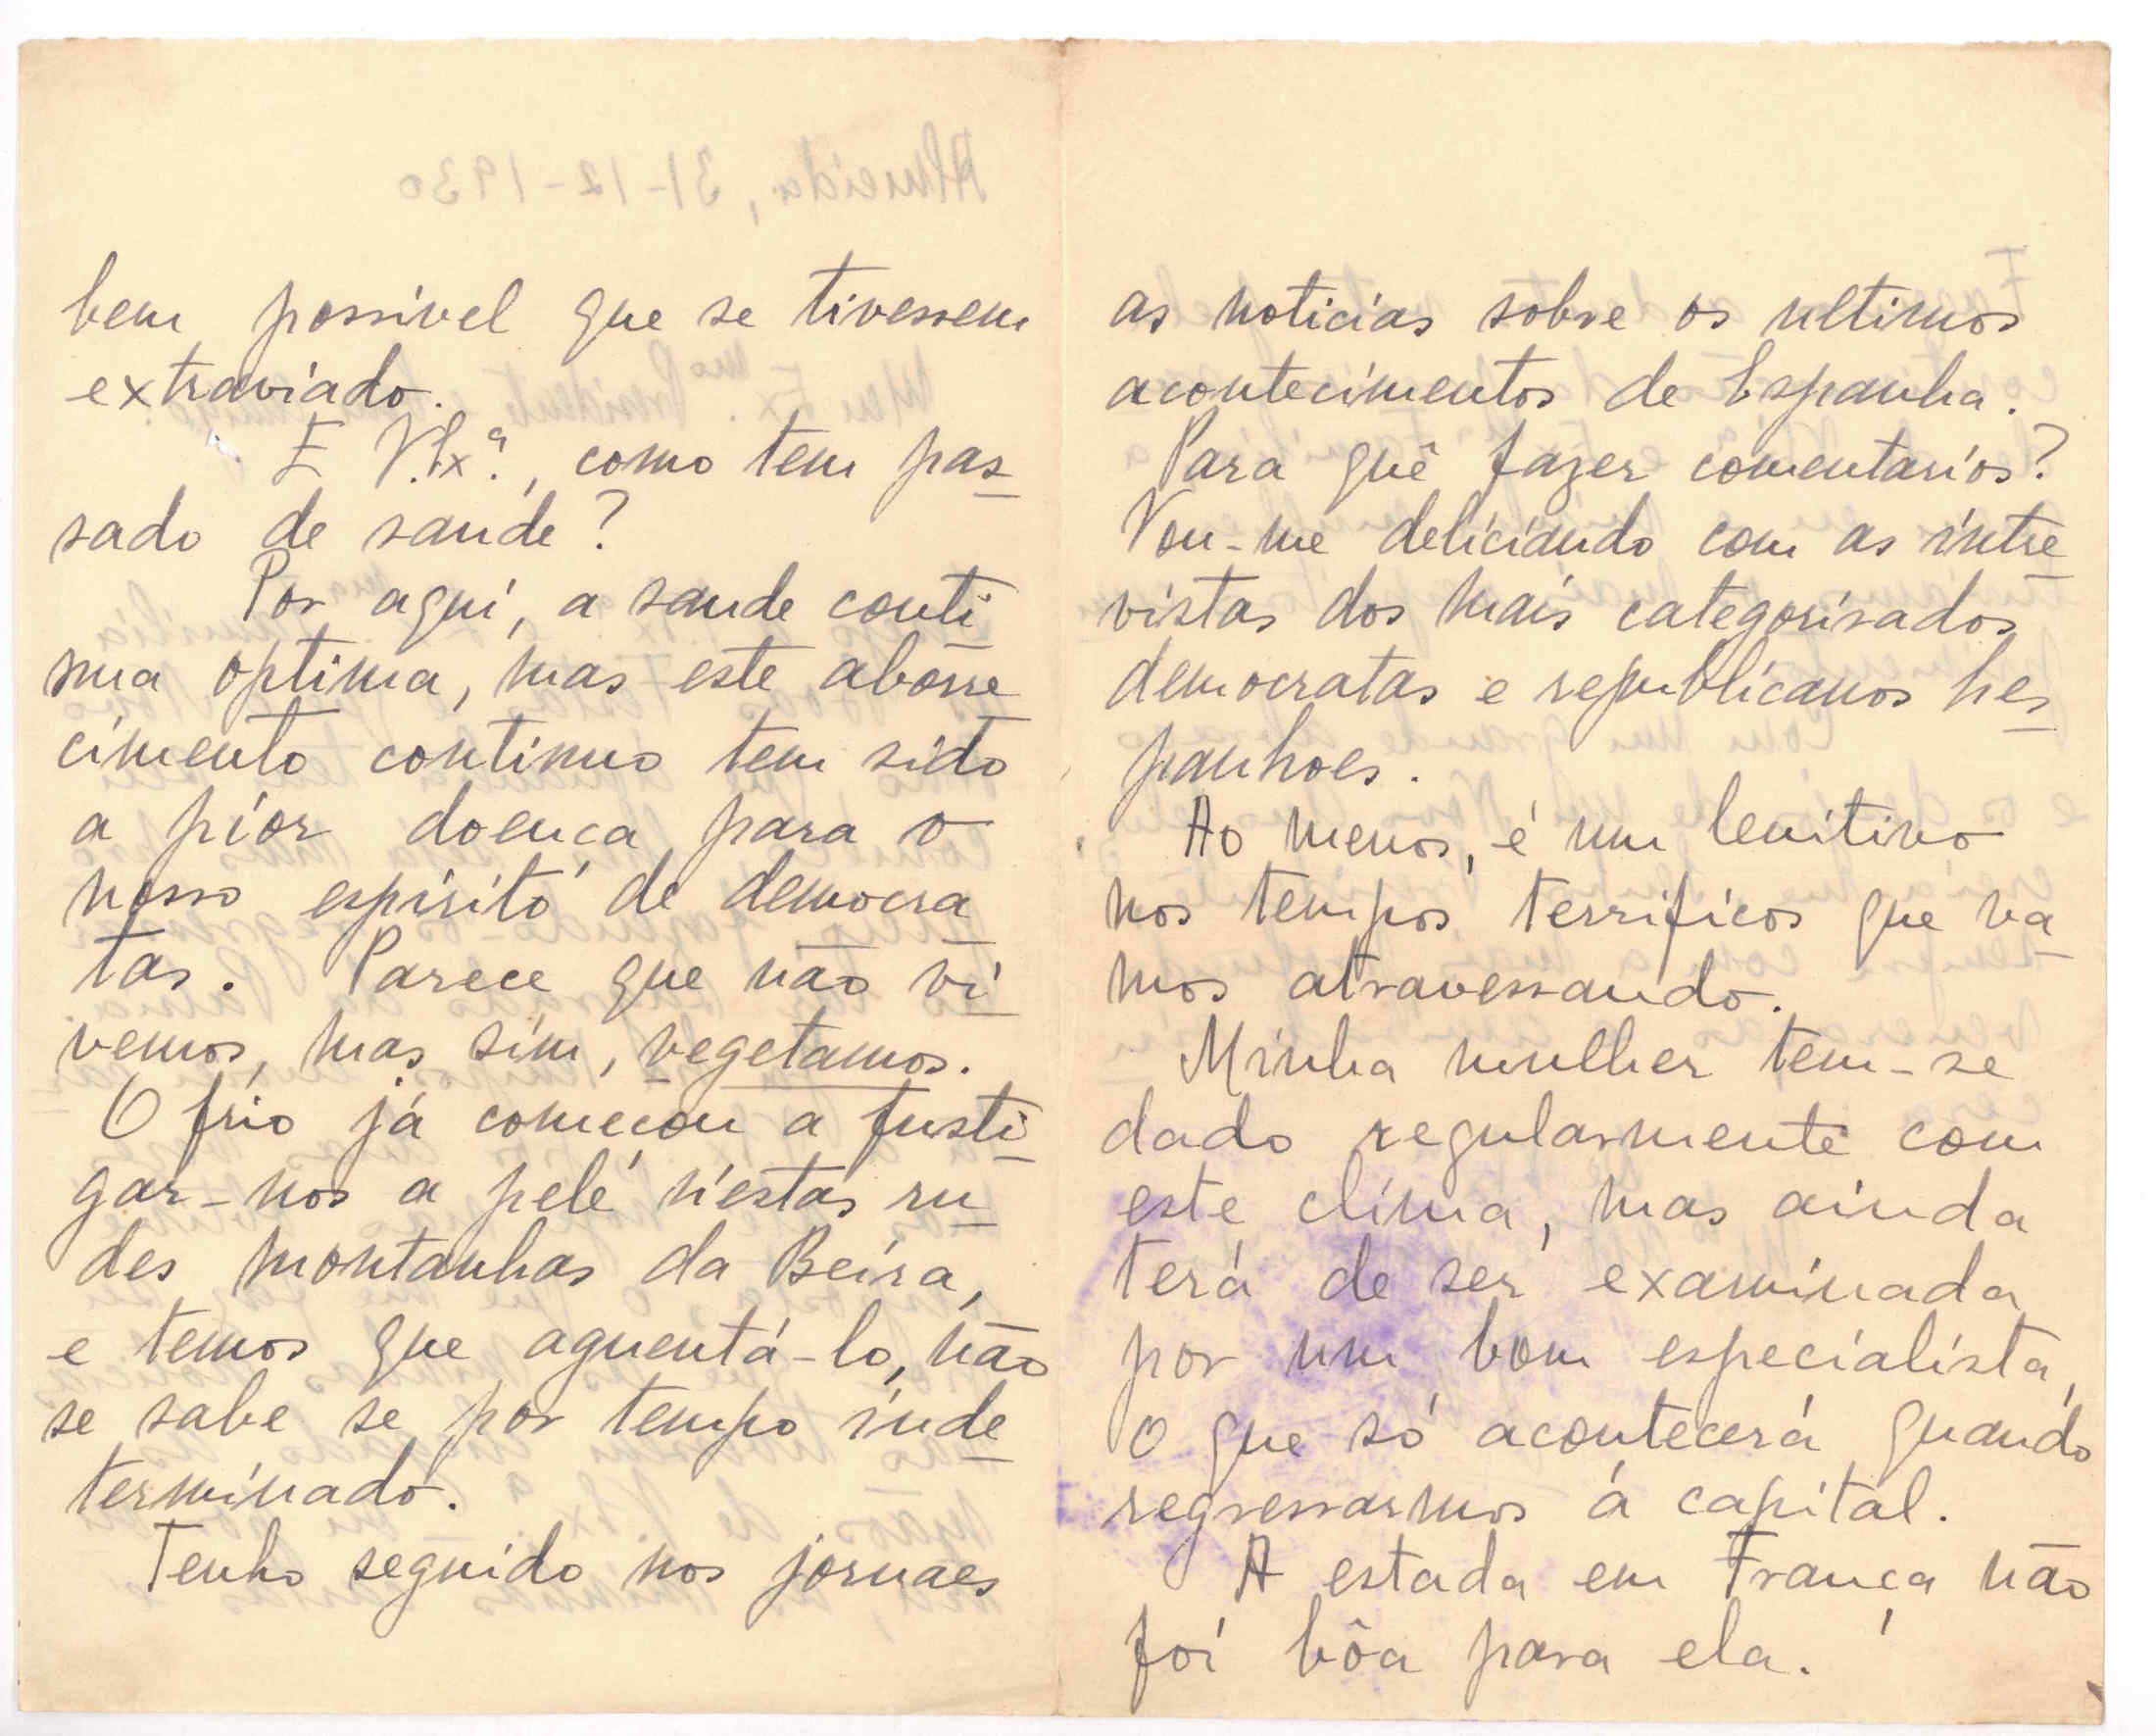 bem possivel que se tivessem
extraviado.
E V. Exª., como tem pas
sado de saude?
Por aqui, a saude conti
nua optima, mas este aborre
cimento continuo tem sido
a pior doença para o
nosso espirito de democra
tas. Parece que não vi
vemos, mas sim, vegetamos.
O frio já começou a fusti
gar-nos a pele n'estas ru
des montanhas da Beira,
e temos que aguentá-lo, não
se sabe se por tempo inde
terminado.
Tenho seguido nos jornaes
as noticias sobre os ultimos
acontecimentos de Espanha.
Para quê fazer comentarios?
Vou-me deliciando com as intre
vistas dos mais categorisados
democratas e republicanos hes
panhoes.
Ao menos, é um lenitivo
nos tempos terrificos que va
mos atravessando.
Minha mulher tem-se
dado regularmente com
este clima, mas ainda
terá de ser examinada
por um bom especialista,
o que só acontecerá quando
regressarmos á capital.
A estada em França não
foi bôa para ela.
Almeida, 31-12-1930